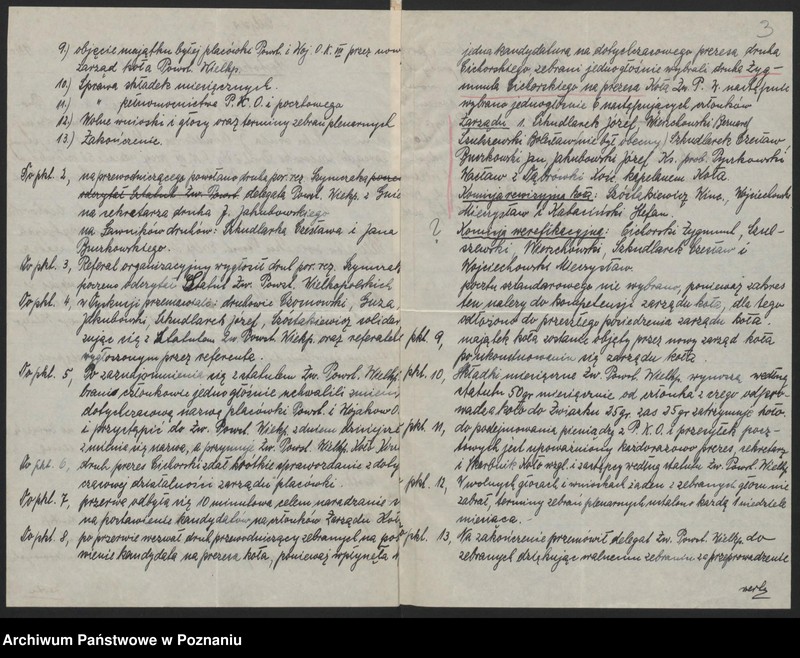 9.) objęcie majątku byłej placówki Powst. i Woj. O.K. VII przez now
Zarząd Koła Powst. Wielkp.
10.) Sprawa składek miesięcznych.
11.) " pełnomocnictwa P.K.O. i pocztowego
12.) Wolne wnioski i głosy oraz terminy zebrań plenarnych
13.) Zakończenie.
Do pkt. 2, na przewodniczącego powołano druha por. rez. Szymczaka
odczytał Statut Zw. Powst. delegata Powst. Wielkp. z Gnie
na sekretarza druha J. Jakubowskiego
na Ławników druhów: Skudlarka Czesława i Jana
Burkowskiego.
Do pkt. 3, Referat organizacyjny wygłosił druh por. rez. Szymczak
poczem odczytał Statut Zw. Powst. Wielkopolskich
Do pkt. 4, w Dyskusji przemawiali: druhowie
Jakubowski, Skudlarek Józef, solidar
zując się z Statutem Zw. Powst. Wielkp. oraz referatem
wygłoszonym przez referenta.
Do pkt. 5, Po zaznajomieniu się z statutem Zw. Powst. Wielkp.
brani członkowie jednogłośnie uchwalili zmieni
dotychczasową nazwę placówki Powst. i Wojaków O.
i przystąpić do Zw. Powst. Wielkp. z dniem dzisiejsz
zmienić się nazwą, a przyjmuje Zw. Powst. Wielkp. Koło
Do pkt. 6, druh prezes Cichorski zdał krótkie sprawozdanie z doty
czasowej działalności zarządu placówki.
Do pkt. 7, przerwa odbyła się 10 minutowa celem naradzania
na postawienie kandydatów na członków Zarządu Koła
Do pkt. 8, po przerwie wezwał druh przewodniczący zebranych na posta
wienie kandydata na prezesa koła, ponieważ wpłynęła
3
jedna kandydatura na dotychczasowego prezesa druha
Cichorskiego, zebrani jednogłośnie wybrali druha Zyg-
munta Cichorskiego na prezesa Koła Zw. P. W. następnie
wybrano jednogłośnie 6 następujących członków
Zarządu: 1. Skudlarek Józef, Wierzchowski
Bolesław (nie był obecny) Skudlarek Czesław,
Burkowski Jan, Jakubowski Józef Ks. prob. Pyszkowski
Wacław z Dąbrówki Kość. kapelanem Koła.
Komisja rewizyjna koła: Wojciechowski
Mieczysław i Kabaciński Stefan.
? Komisja weryfikacyjna: Cichorski Zygmunt, Szul-
czewski, Wierzchowski, Skudlarek Czesław i
Wojciechowski Mieczysław.
pocztu sztandarowego nie wybrano, ponieważ zakres
ten należy do kompetencji zarządu koła, dla tego
odłożono do przyszłego posiedzenia zarządu koła.
pkt. 9, majątek koła zostanie objęty przez nowy zarząd koła
po ukonstytuowaniu się zarządu koła.
pkt. 10, Składki miesięczne Zw. Powst. Wielkp. wynoszą według
statutu 50 gr. miesięcznie od członka z czego odpro-
wadza koło do Związku 25 gr. zaś 25 gr zatrzymuje koło.
pkt. 11, do podejmowania pieniędzy z P.K.O. i przesyłek pocz-
towych jest upoważniony każdorazowo prezes, sekretarz
i Skarbnik Koła wzgl. i zastępcy według statutu Zw. Powst. Wielkp.
pkt. 12, W wolnych głosach i wnioskach żaden z zebranych głosu nie
zabrał, terminy zebrań plenarnych ustalono każdą 1 niedzielę
miesiąca.
pkt. 13, Na zakończenie przemówił delegat Zw. Powst. Wielkp. do
zebranych dziękując walnemu zebraniu za przeprowadzenie
verte
Archiwum Państwowe w Poznaniu